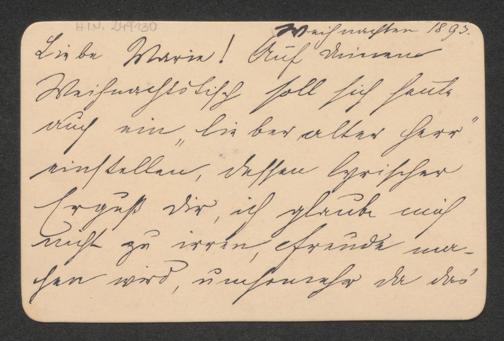 H.I.N. 219130
Weihnachten 1893.
Liebe Marie! Auf Deinem
Weihnachtstisch soll sich heute
auch ein "lieber alter Herr"
einstellen, dessen lyrischer
Erguß Dir, ich glaube mich
nicht zu irren, Freude ma-
chen wird, umsomehr da das